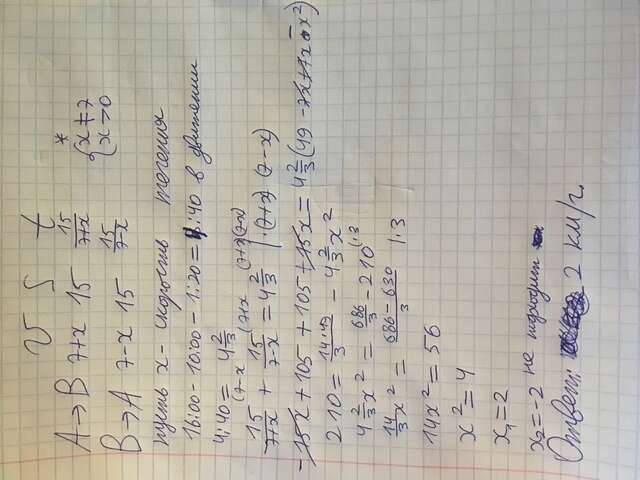 V S t
A→B 7+x 15 15/7+x *
B→A 7-x 15 15/7-x {x≠7 x>0
пусть x - скорость течения
16:00-10:00-1:20=4:40 в движении
4:40=4 2/3
(7-x (7+x (7+x)(7-x)
15/7+x + 15/7-x = 4 2/3 |·(7+x)(7-x)
-15x+105+105+15x=4 2/3(49-7x+7x-x²)
210=14·49/3-4 2/3x²
4 2/3x²=686/3-210 |·3
14/3x²=686-630/3 |·3
14x²=56
x²=4
x₁=2
x₂=-2 не подходит
Ответ: 2 км/г.